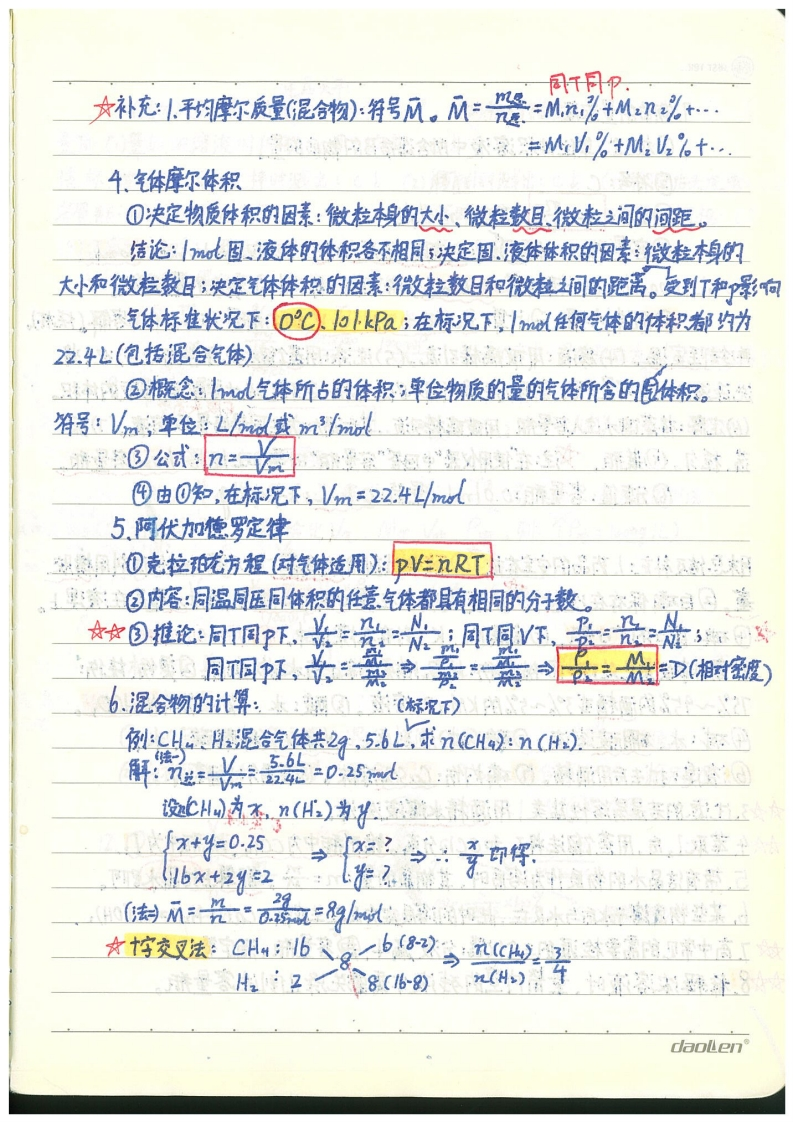 同T同P.
☆补充：1.平均摩尔质量(混合物)：符号M̄。M̄=m总/n总=M₁n₁%+M₂n₂%+…
=M₁V₁%+M₂V₂%+…
4、气体摩尔体积
①决定物质体积的因素：微粒本身的大小、微粒数目、微粒之间的间距。
结论：1mol固、液体的体积各不相同；决定固、液体体积的因素：微粒本身的
大小和微粒数目；决定气体体积的因素：微粒数目和微粒之间的距离。受到T和p影响
气体标准状况下：0°C、101kPa；在标况下，1mol任何气体的体积都约为
22.4L(包括混合气体)
②概念：1mol气体所占的体积；单位物质的量的气体所含的体积。
符号：Vm，单位：L/mol或m³/mol
③公式：n=V/Vm
④由①知，在标况下，Vm=22.4L/mol
5、阿伏加德罗定律
①克拉珀龙方程(对气体适用)：pV=nRT
②内容：同温同压同体积的任意气体都具有相同的分子数。
☆☆③推论：同T同p下，V₁/V₂=n₁/n₂=N₁/N₂；同T同V下，P₁/P₂=n₁/n₂=N₁/N₂；
同T同p下，V₁/V₂=(m₁/M₁)/(m₂/M₂)⇒(m₁/ρ₁)/(m₂/ρ₂)=(m₁/M₁)/(m₂/M₂)⇒ρ₁/ρ₂=M₁/M₂=D(相对密度)
6.混合物的计算：
(标况下)
例：CH₄、H₂混合气体共2g，5.6L，求n(CH₄)：n(H₂).
解：(法一)n总=V/Vm=5.6L/22.4L=0.25mol
设n(CH₄)为x，n(H₂)为y.
{x+y=0.25 ⇒ {x=? ⇒ ∴x/y即得.
{16x+2y=2 {y=?
(法二)M̄=m/n=2g/0.25mol=8g/mol
☆十字交叉法：CH₄：16 6(8-2)
8 ⇒ n(CH₄)/n(H₂)=3/4
H₂：2 8(16-8)
daolen®